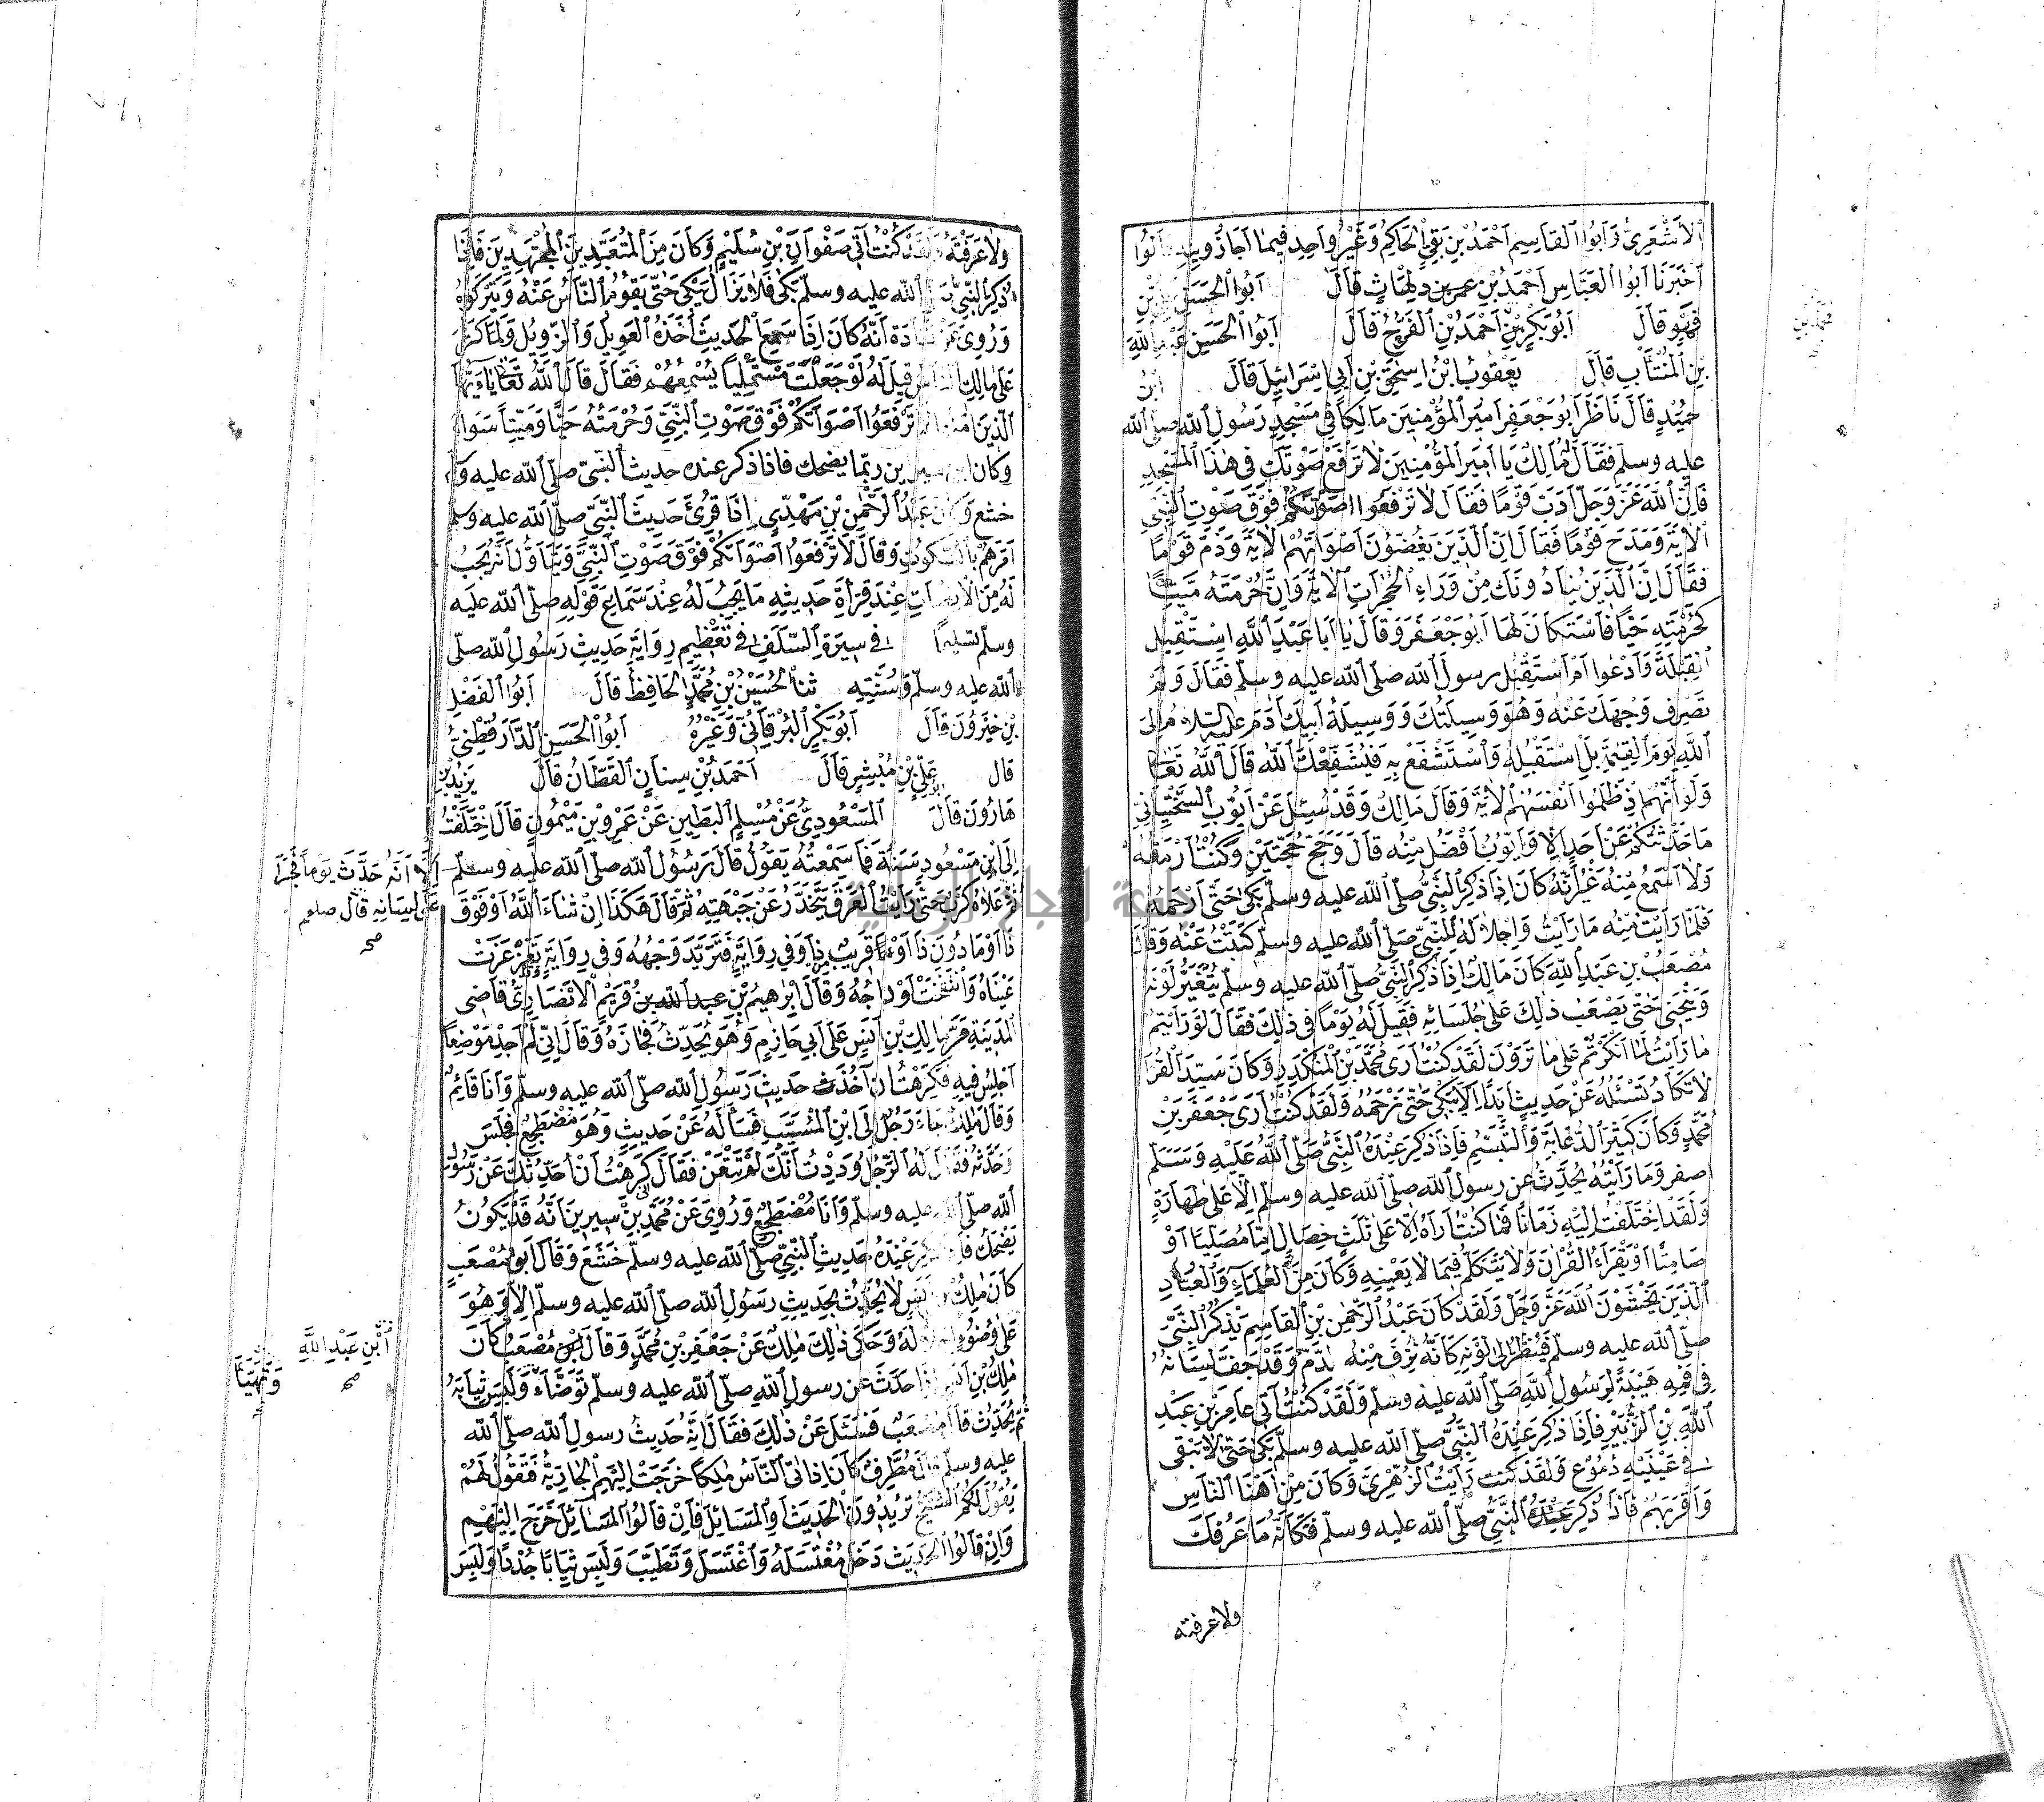 الأَشْعَرِيُّ وَأَبُوا الْقَاسِمِ أَحْمَدُ بْنِ بَقِيٍّ الْحَاكِمُ وَغَيْرُ وَاحِدٍ فِيمَا أَجَازُونِيهِ قَالُوا
أَخْبَرَنَا أَبُوا الْعَبَّاسِ أَحْمَدُ بْنِ عُمَرَ بْنِ دِلْهَاثٍ قَالَ أَبُوا الْحَسَنِ بْنِ
فِهْرٍ قَالَ أَبُو بَكْرٍ بْنِ أَحْمَدُ بْنِ الْفَرَجِ قَالَ أَبُوا الْحَسَنِ عَبْدُ اللَّهِ
بْنِ الْمُنْتَابِ قَالَ يَعْقُوبُ ابْنُ إِسْحَقَ بْنِ أَبِي إِسْرَائِيلَ قَالَ ابْنُ
حُمَيْدٍ قَالَ نَاظَرَ أَبُو جَعْفَرٍ أَمِيرُ الْمُؤْمِنِينَ مَالِكًا فِي مَسْجِدِ رَسُولِ اللَّهِ صَلَّى اللَّهُ
عليه وسلم فَقَالَ مَالِكٌ يَا أَمِيرَ الْمُؤْمِنِينَ لَا تَرْفَعْ صَوْتَكَ فِي هَذَا الْمَسْجِدِ
فَإِنَّ اللَّهَ عَزَّ وَجَلَّ أَدَّبَ قَوْمًا فَقَالَ لَا تَرْفَعُوا أَصْوَاتَكُمْ فَوْقَ صَوْتِ النَّبِيِّ
الْآيَةَ وَمَدَحَ قَوْمًا فَقَالَ إِنَّ الَّذِينَ يَغُضُّونَ أَصْوَاتَهُمْ الْآيَةَ وَذَمَّ قَوْمًا
فَقَالَ إِنَّ الَّذِينَ يُنَادُونَكَ مِنْ وَرَاءِ الْحُجُرَاتِ الْآيَةَ وَإِنَّ حُرْمَتَهُ مَيِّتًا
كَحُرْمَتِهِ حَيًّا فَاسْتَكَانَ لَهَا أَبُو جَعْفَرَ وَقَالَ يَا أَبَا عَبْدِ اللَّهِ اسْتَقْبِلِ
الْقِبْلَةَ وَأَدْعُوا أَمْ أَسْتَقْبِلُ رسولَ الله صلى الله عليه وسلم فَقَالَ وَلِمَ
تَصْرِفُ وَجْهَكَ عَنْهُ وَهُوَ وَسِيلَتُكَ وَوَسِيلَةُ أَبِيكَ آدَمَ عليه السلام إِلَى
اللَّهِ يَوْمَ الْقِيمَةِ بَلِ اسْتَقْبِلْهُ وَاسْتَشْفِعْ بِهِ فَيُشَفِّعْكَ اللَّهُ قَالَ اللَّهُ تَعَالَى
وَلَوْ أَنَّهُمْ إِذْ ظَلَمُوا أَنْفُسَهُمُ الْآيَةَ وَقَالَ مَالِكٌ وَقَدْ سُئِلَ عَنْ أَيُّوبَ السَّخْتِيَانِي
مَا حَدَّثْتُكُمْ عَنْ أَحَدٍ إِلَّا وَأَيُّوبُ أَفْضَلُ مِنْهُ قَالَ وَحَجَّ حَجَّتَيْنِ وَكُنْتُ أَرْمُقُهُ
وَلَا أَسْمَعُ مِنْهُ غَيْرَ أَنَّهُ كَانَ إِذَا ذُكِرَ النَّبِيُّ صلى الله عليه وسلم بَكَى حَتَّى أَرْحَمُهُ
فَلَمَّا رَأَيْتُ مِنْهُ مَا رَأَيْتُ وَإِجْلَالَهُ لِلنَّبِيِّ صلى الله عليه وسلم كَتَبْتُ عَنْهُ وَقَالَ
مُصْعَبُ بْنِ عَبْدِ اللَّهِ كَانَ مَالِكٌ إِذَا ذَكَرَ النَّبِيَّ صلى الله عليه وسلم يَتَغَيَّرُ لَوْنُهُ
وَيَنْحَنِي حَتَّى يَصْعَبَ ذَلِكَ عَلَى جُلَسَائِهِ فَقِيلَ لَهُ يَوْمًا فِي ذَلِكَ فَقَالَ لَوْ رَأَيْتُمْ
مَا رَأَيْتُ لَمَا أَنْكَرْتُمْ عَلَيَّ مَا تَرَوْنَ لَقَدْ كُنْتُ أَرَى مُحَمَّدَ بْنِ الْمُنْكَدِرِ وَكَانَ سَيِّدَ الْقُرَّا
لَا تَكَادُ تَسْئَلُهُ عَنْ حَدِيثٍ أَبَدًا إِلَّا بَكَى حَتَّى نَرْحَمَهُ وَلَقَدْ كُنْتُ أَرَى جَعْفَرَ بْنِ
مُحَمَّدٍ وَكَانَ كَثِيرَ الدُّعَابَةِ وَالتَّبَسُّمِ فَإِذَا ذُكِرَ عِنْدَهُ النَّبِيُّ صَلَّى اللَّهُ عَلَيْهِ وَسَلَّمَ
اصفر وَمَا رَأَيْتُهُ يُحَدِّثُ عَنْ رسول الله صلى الله عليه وسلم إِلَّا عَلَى طَهَارَةٍ
وَلَقَدْ اخْتَلَفْتُ إِلَيْهِ زَمَانًا فَمَا كُنْتُ أَرَاهُ إِلَّا عَلَى ثَلَثِ خِصَالٍ إِمَّا مُصَلِّيًا أَوْ
صَامِتًا أَوْ يَقْرَأُ الْقُرْآنَ وَلَا يَتَكَلَّمُ فِيمَا لَا يَعْنِيهِ وَكَانَ مِنَ الْعُلَمَاءِ وَالْعُبَّادِ
الَّذِينَ يَخْشَوْنَ اللَّهَ عَزَّ وَجَلَّ وَلَقَدْ كَانَ عَبْدُ الرَّحْمَنِ بْنِ الْقَاسِمِ يَذْكُرُ النَّبِيَّ
صلى الله عليه وسلم فَيُنْظَرُ إِلَى لَوْنِهِ كَأَنَّهُ نُزِفَ مِنْهُ الدَّمُ وَقَدْ جَفَّ لِسَانُهُ
فِي فَمِهِ هَيْبَةً لِرَسُولِ اللَّهِ صَلَّى اللَّهُ عليه وسلم وَلَقَدْ كُنْتُ آتِي عَامِرَ بْنِ عَبْدِ
اللَّهِ بْنِ الزُّبَيْرِ فَإِذَا ذُكِرَ عِنْدَهُ النَّبِيُّ صلى الله عليه وسلم بَكَى حَتَّى لَا يَبْقَى
فِي عَيْنَيْهِ دُمُوعٌ وَلَقَدْ كُنْتُ رَأَيْتُ الزُّهْرِيَّ وَكَانَ مِنْ أَهْنَا النَّاسِ
وَأَقْرَبِهِمْ فَإِذَا ذُكِرَ عِنْدَهُ النَّبِيُّ صلى الله عليه وسلم فَكَأَنَّهُ مَا عَرَفَكَ
ولا عرفته
وَلَا عَرَفْتَهُ وَلَقَدْ كُنْتُ آتِي صَفْوَانَ بْنِ سُلَيْمٍ وَكَانَ مِنَ الْمُتَعَبِّدِينَ الْمُجْتَهِدِينَ فَإِذَا
ذُكِرَ النَّبِيُّ صلى الله عليه وسلم بَكَى فَلَا يَزَالُ يَبْكِي حَتَّى يَقُومُ النَّاسُ عَنْهُ وَيَتْرُكُوهُ
وَرُوِيَ عَنْ قَتَادَةَ أَنَّهُ كَانَ إِذَا سَمِعَ الْحَدِيثَ أَخَذَهُ الْعَوِيلُ وَالزَّوِيلُ وَلَمَّا كَثُرَ
عَلَى مَالِكٍ النَّاسُ قِيلَ لَهُ لَوْ جَعَلْتَ مُسْتَمْلِيًا يُسْمِعُهُمْ فَقَالَ قَالَ اللَّهُ تَعَالَى يَاءَيُّهَا
الَّذِينَ آمَنُوا لَا تَرْفَعُوا أَصْوَاتَكُمْ فَوْقَ صَوْتِ النَّبِيِّ وَحُرْمَتُهُ حَيًّا وَمَيِّتًا سَوَاءٌ
وكان ابن سيرين ربما يضحك فإذا ذكر عنده حديث النبي صلى الله عليه وسلم
خشع وَكَانَ عَبْدُ الرَّحْمَنِ بْنِ مَهْدِيٍّ إِذَا قَرِئَ حَدِيثُ النَّبِيِّ صلى الله عليه وسلم
أَمَرَهُمْ بِالسُّكُوتِ وَقَالَ لَا تَرْفَعُوا أَصْوَاتَكُمْ فَوْقَ صَوْتِ النَّبِيِّ وَيَتَأَوَّلُ أَنَّهُ يَجِبُ
لَهُ مِنَ الْإِنْصَاتِ عِنْدَ قِرَأَةِ حَدِيثِهِ مَا يَجِبُ لَهُ عِنْدَ سَمَاعِ قَوْلِهِ صَلَّى اللَّهُ عَلَيْهِ
وسلم تسليما في سِيرَةِ السَّلَفِ فِي تَعْظِيمِ رِوَايَةِ حَدِيثِ رَسُولِ اللَّهِ صلى
الله عليه وسلم وَسُنَّتِهِ ثَنَا الْحُسَيْنُ بْنِ مُحَمَّدٍ الْحَافِظُ قَالَ أَبُوا الْفَضْلِ
بْنِ خَيْرُونَ قَالَ أَبُو بَكْرٍ الْبُرْقَانِيُّ وَغَيْرُهُ أَبُوا الْحَسَنِ الدَّارَقُطْنِيُّ
قال عَلِيُّ بْنِ مُبَشِّرٍ قَالَ أَحْمَدُ بْنِ سِنَانٍ الْقَطَّانُ قَالَ يَزِيدُ بْنِ
هَارُونَ قَالَ الْمَسْعُودِيُّ عَنْ مُسْلِمٍ الْبَطِينِ عَنْ عَمْرِو بْنِ مَيْمُونٍ قَالَ اخْتَلَفْتُ
إِلَى ابْنِ مَسْعُودٍ سَنَةً فَمَا سَمِعْتُهُ يَقُولُ قَالَ رَسُولُ الله صلى الله عليه وسلم
إِلَّا أَنَّهُ حَدَّثَ يَوْمًا فَجَرَى
عَلَى لِسَانِهِ قَالَ صلعم
صح
ثُمَّ عَلَاهُ كَرْبٌ حَتَّى رَأَيْتُ الْعَرَقَ يَتَحَدَّرُ عَنْ جَبْهَتِهِ ثُمَّ قَالَ هَكَذَا إِنْ شَاءَ اللَّهُ أَوْ فَوْقَ
ذَا أَوْ مَا دُونَ ذَا أَوْ قَرِيبٌ مِنْ ذَا وَفِي رِوَايَةٍ فَتَرَبَّدَ وَجْهُهُ وَفِي رِوَايَةٍ تَغَرْغَرَتْ
عَيْنَاهُ وَانْتَفَخَتْ أَوْدَاجُهُ وَقَالَ إِبْرَهِيمُ بْنِ عبد الله بن قُرَيْمٍ الْأَنْصَارِيُّ قَاضِي
الْمَدِينَةِ مَرَّ مَالِكُ بْنِ أَنَسٍ عَلَى أَبِي حَازِمٍ وَهُوَ يُحَدِّثُ فَجَازَهُ وَقَالَ إِنِّي لَمْ أَجِدْ مَوْضِعًا
أَجْلِسُ فِيهِ فَكَرِهْتُ أَنْ آخُذَ حَدِيثَ رَسُولِ الله صلى الله عليه وسلم وَأَنَا قَائِمٌ
وَقَالَ مَلِكٌ جَاءَ رَجُلٌ إِلَى ابْنِ الْمُسَيَّبِ فَسَأَلَهُ عَنْ حَدِيثٍ وَهُوَ مُضْطَجِعٌ فَجَلَسَ
وَحَدَّثَهُ فَقَالَ لَهُ الرَّجُلُ وَدِدْتُ أَنَّكَ لَمْ تَتَعَنَّ فَقَالَ كَرِهْتُ أَنْ أُحَدِّثَكَ عَنْ رَسُولِ
الله صلى الله عليه وسلم وَأَنَا مُضْطَجِعٌ وَرُوِيَ عَنْ مُحَمَّدِ بْنِ سِيرِينَ أَنَّهُ قَدْ يَكُونُ
يَضْحَكُ فَإِذَا ذُكِرَ عِنْدَهُ حَدِيثِ النَّبِيِّ صلى الله عليه وسلم خَشَعَ وَقَالَ أَبُو مُصْعَبٍ
كَانَ مَلِكُ بْنُ أَنَسٍ لَا يُحَدِّثُ بِحَدِيثِ رَسُولِ الله صلى الله عليه وسلم إِلَّا وَهُوَ
عَلَى وُضُوءٍ إِجْلَالًا لَهُ وَحَكَى ذَلِكَ مَلِكٌ عَنْ جَعْفَرِ بْنِ مُحَمَّدٍ وَقَالَ مُصْعَبُ كَانَ
ابْنِ عَبْدِ اللَّهِ
صح
مَلِكُ بْنِ أَنَسٍ إِذَا حَدَّثَ عن رسول الله صلى الله عليه وسلم تَوَضَّأَ وَلَبِسَ ثِيَابَهُ
وَتَهَيَّأَ
ثُمَّ يُحَدِّثُ قَالَ مُصْعَبٌ فَسُئِلَ عَنْ ذَلِكَ فَقَالَ إِنَّهُ حَدِيثُ رسول الله صلى الله
عليه وسلم قَالَ مُطَرِّفٌ كَانَ إِذَا أَتَى النَّاسُ مَلِكًا خَرَجَتْ إِلَيْهِمُ الْجَارِيَةُ فَتَقُولُ لَهُمْ
يَقُولُ لَكُمُ الشَّيْخُ تُرِيدُونَ الْحَدِيثَ أَوِ الْمَسَائِلَ فَإِنْ قَالُوا الْمَسَائِلَ خَرَجَ إِلَيْهِمْ
وَإِنْ قَالُوا الْحَدِيثَ دَخَلَ مُغْتَسَلَهُ وَاغْتَسَلَ وَتَطَيَّبَ وَلَبِسَ ثِيَابًا جُدُدًا وَلَبِسَ